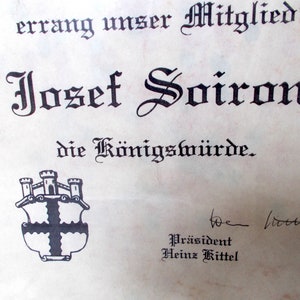 errang unser Mitglied
Josef Soiron
die Königswürde.
Präsident
Heinz Kittel